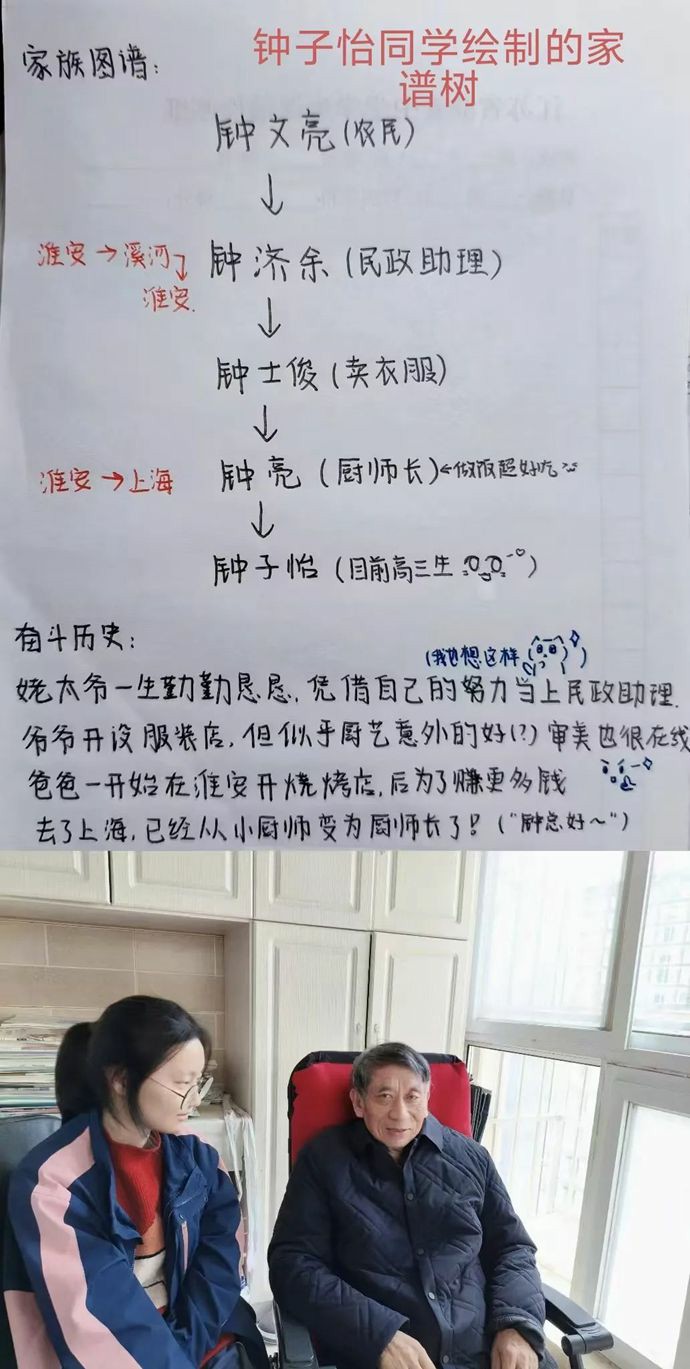 钟子怡同学绘制的家
谱树
家族图谱：
钟文亮(农民)
↓
淮安→溪河
淮安
钟济余(民政助理)
↓
钟士俊(卖衣服)
↓
淮安→上海
钟亮(厨师长)←做饭超好吃
↓
钟子怡(目前高三生)
奋斗历史：
(我也想这样)
姥太爷一生勤勤恳恳,凭借自己的努力当上民政助理.
爷爷开设服装店,但似乎厨艺意外的好(?)审美也很在线
爸爸一开始在淮安开烧烤店,后为了赚更多钱
去了上海,已经从小厨师变为厨师长了!("钟总好~")